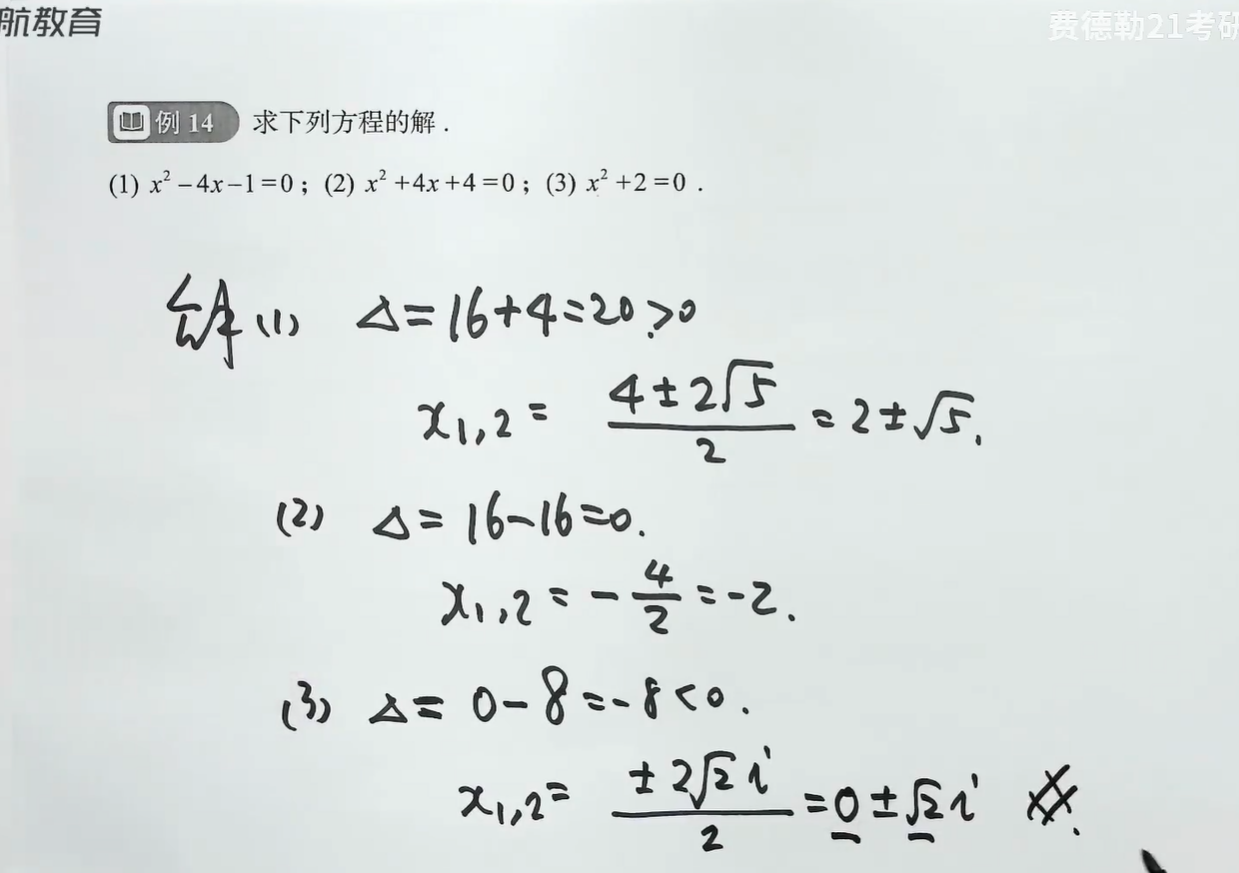 航教育
费德勒21考研
例 14 求下列方程的解.
(1) x² − 4x − 1 = 0; (2) x² + 4x + 4 = 0; (3) x² + 2 = 0.
解(1) Δ = 16 + 4 = 20 > 0
x₁,₂ = (4 ± 2√5)/2 = 2 ± √5.
(2) Δ = 16 − 16 = 0.
x₁,₂ = −4/2 = −2.
(3) Δ = 0 − 8 = −8 < 0.
x₁,₂ = (± 2√2 i)/2 = 0 ± √2 i #.